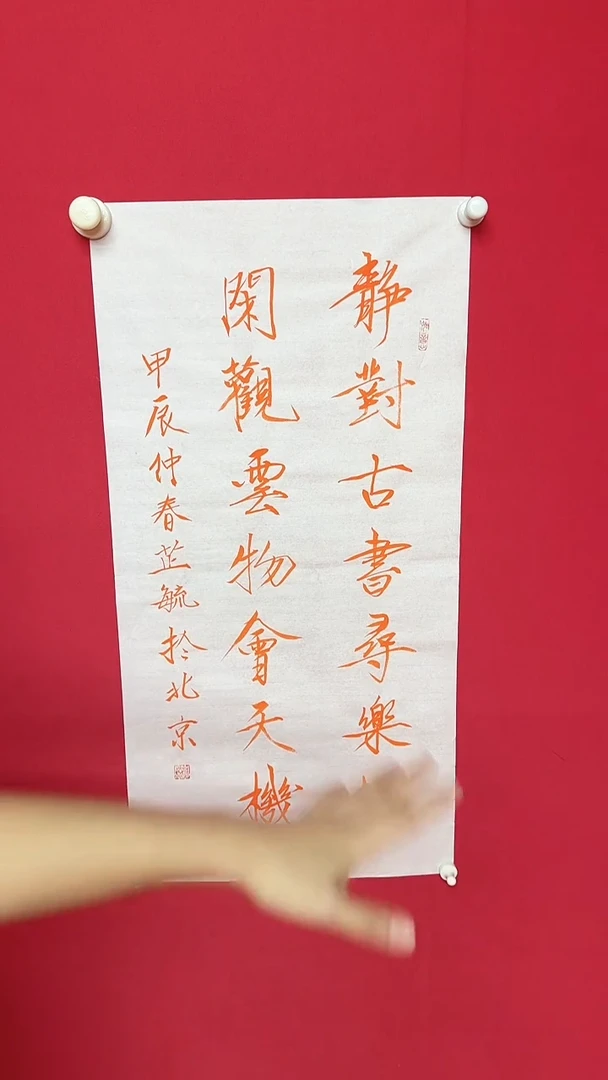 靜對古書尋樂
閑觀雲物會天機
甲辰仲春芷毓於北京